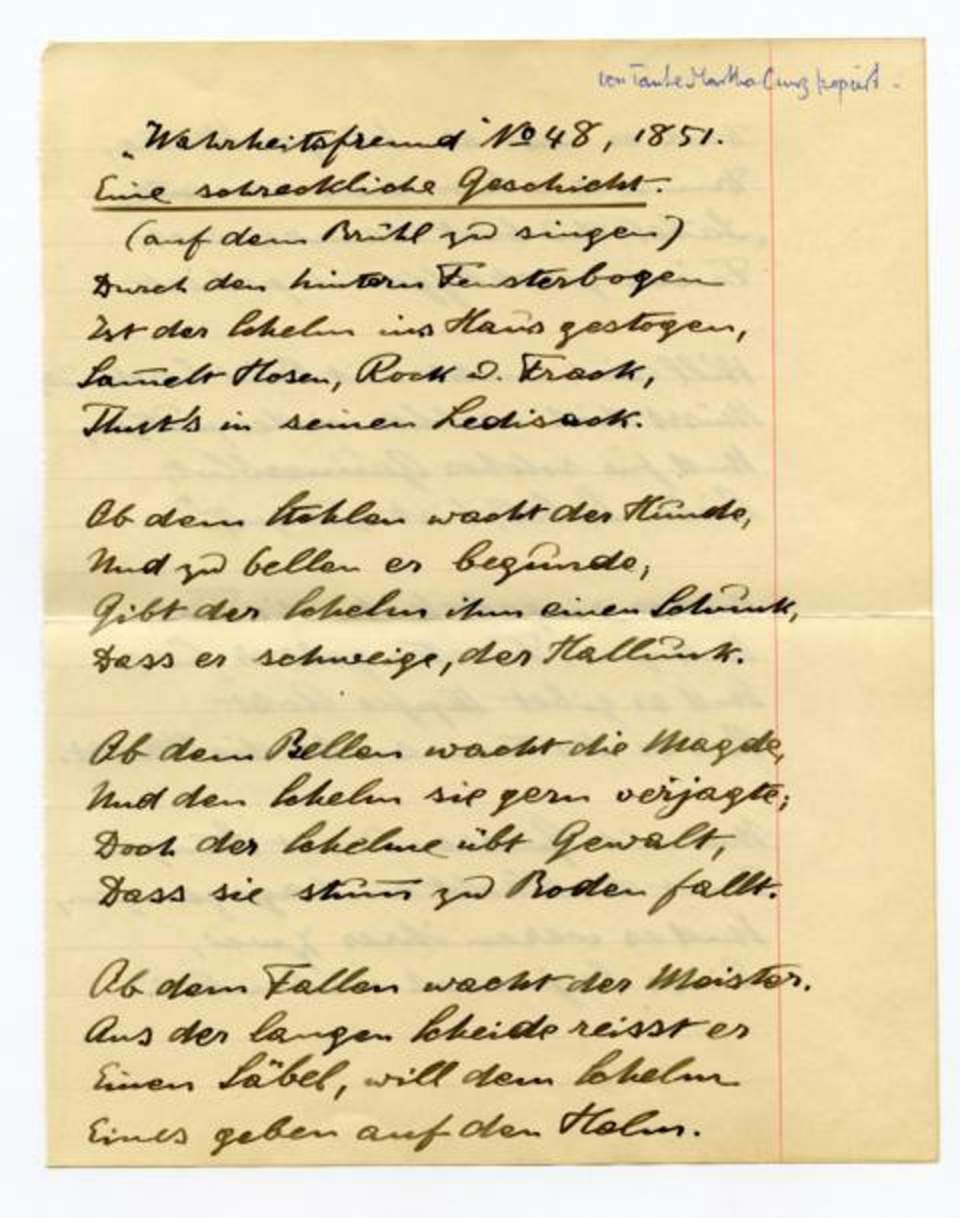 von Tante Martha Cunz kopiert.
„Wahrheitsfreund" No 48, 1851.
Eine schreckliche Geschicht.
(auf dem Brühl zu singen)
Durch den hintern Fensterbogen
Ist der Schelm ins Haus gestogen,
Sam̄elt Hosen, Rock u. Frack,
Thut's in seinen Ledisack.
Ob dem Stehlen wacht der Hunde,
Und zu bellen er begunde,
Gibt der Schelm ihm einen Schwunk,
Dass er schweige, der Hallunk.
Ob dem Bellen wacht die Magde,
Und den Schelm sie gern verjagte;
Doch der Schelme übt Gewalt,
Dass sie stum̄ zu Boden fallt.
Ob dem Fallen wacht der Meister.
Aus der langen Scheide reisst er
Einen Säbel, will dem Schelm
Eines geben auf den Helm.